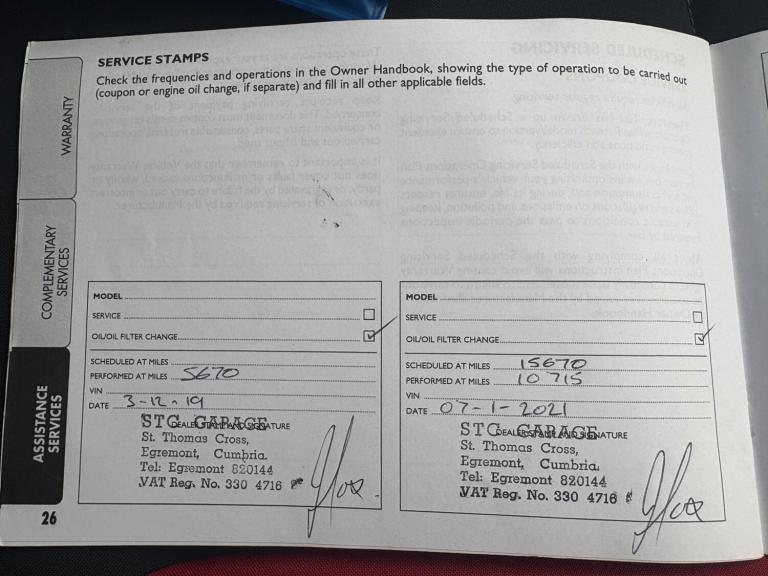 SERVICE STAMPS
Check the frequencies and operations in the Owner Handbook, showing the type of operation to be carried out
(coupon or engine oil change, if separate) and fill in all other applicable fields.
WARRANTY
COMPLEMENTARY
SERVICES
ASSISTANCE
SERVICES
MODEL
SERVICE
OIL/OIL FILTER CHANGE
SCHEDULED AT MILES
PERFORMED AT MILES 5670
VIN
DATE 3-12-19
DEALER STAMP AND SIGNATURE
STC GARAGE
St. Thomas Cross,
Egremont, Cumbria.
Tel: Egremont 820144
VAT Reg. No. 330 4716
MODEL
SERVICE
OIL/OIL FILTER CHANGE
SCHEDULED AT MILES 15670
PERFORMED AT MILES 10715
VIN
DATE 07-1-2021
DEALER STAMP AND SIGNATURE
STC GARAGE
St. Thomas Cross,
Egremont, Cumbria.
Tel: Egremont 820144
VAT Reg. No. 330 4716
26